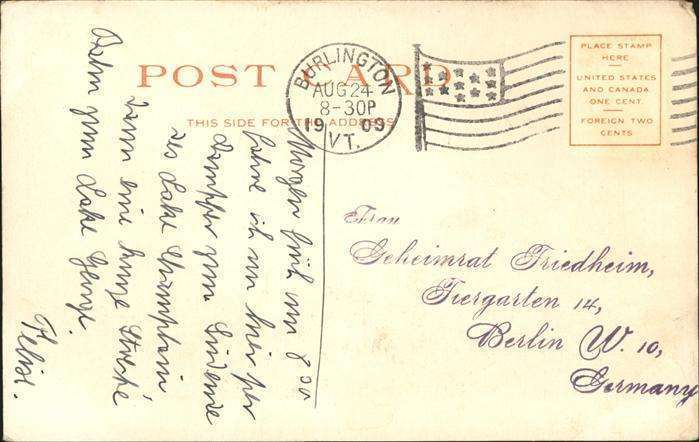 POST CARD
THIS SIDE FOR THE ADDRESS
BURLINGTON
AUG 24
8-30P
1909
VT.
PLACE STAMP
HERE
UNITED STATES
AND CANADA
ONE CENT
FOREIGN TWO
CENTS
Morgen früh um 8 00
fahre ich von hier per
Dampfer zum Südende
des Lake Champlain
dann eine kurze Strecke
Bahn zum Lake George.
Felix.
Frau
Geheimrat Friedheim,
Tiergarten 14,
Berlin W. 10,
Germany